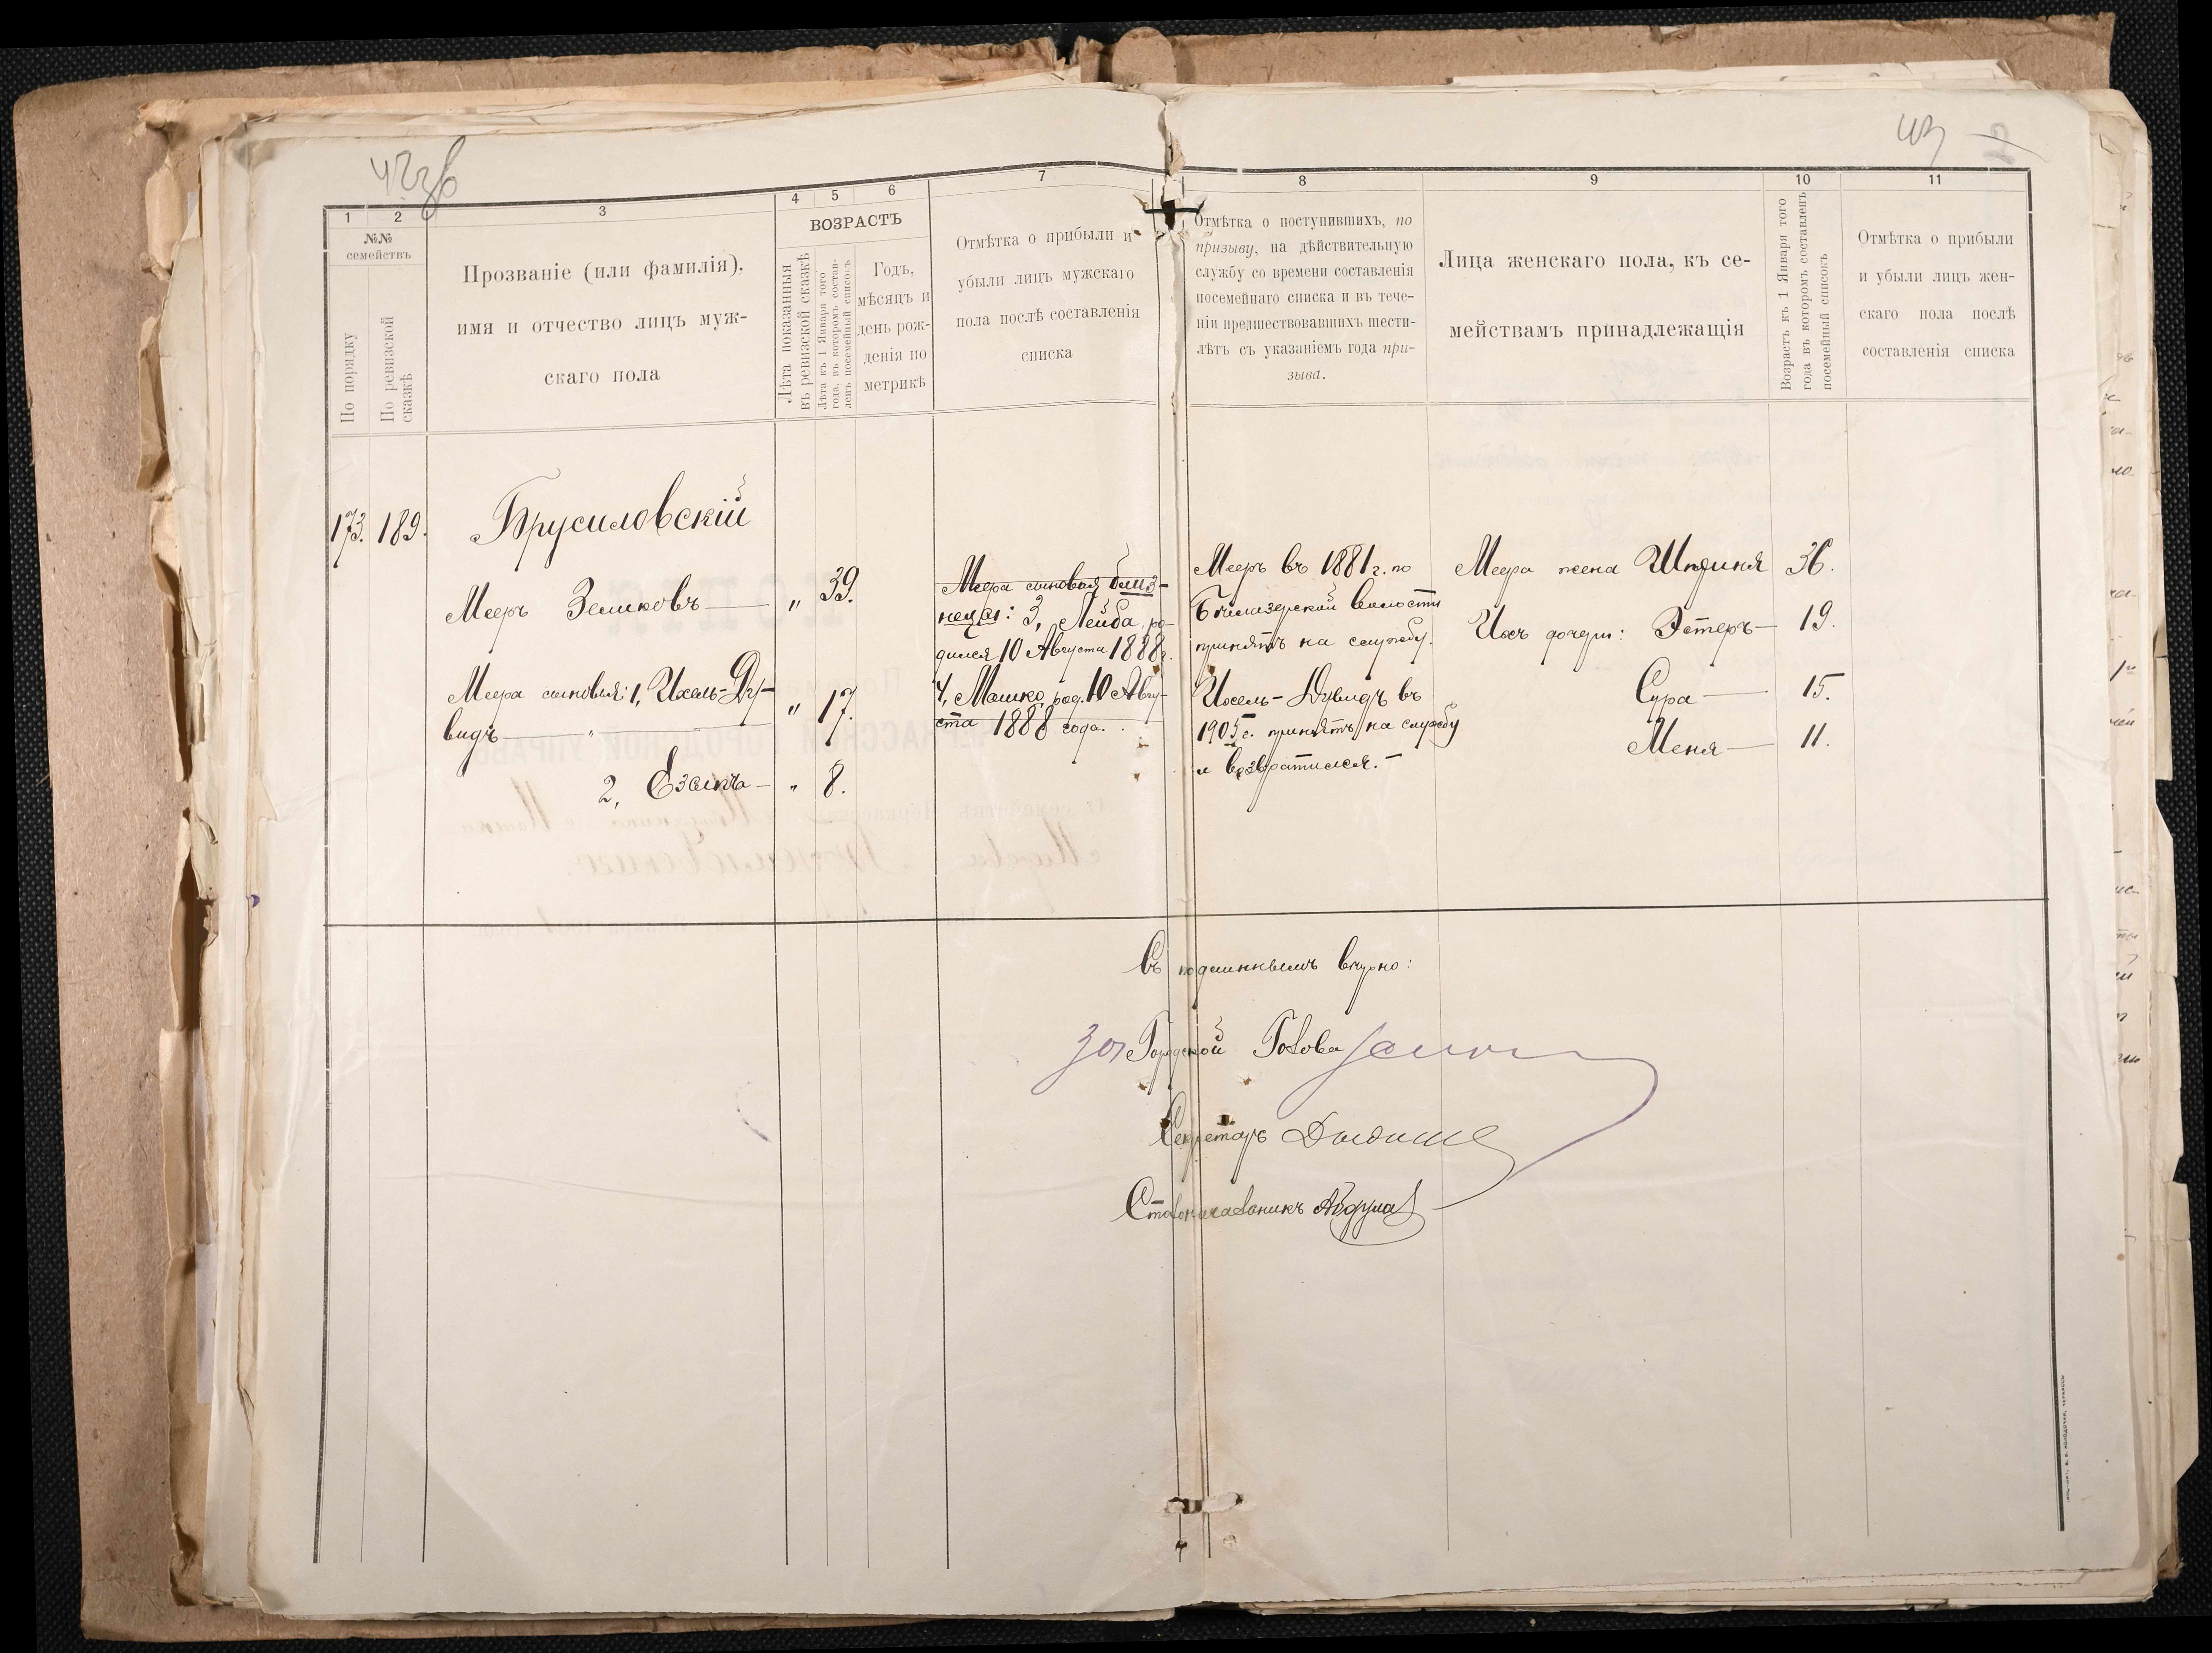 42 зв
43
2
1
2
3
4
5
6
7
8
9
10
11
№№
семействъ
По порядку
По ревизской
сказкѣ
Прозваніе (или фамилія),
имя и отчество лицъ муж-
скаго пола
ВОЗРАСТЪ
Лѣта показанныя
въ ревизской сказкѣ
Лѣта къ 1 Января того
года, въ которомъ состав-
ленъ посемейный списокъ
Годъ,
мѣсяцъ и
день рож-
денія по
метрикѣ
Отмѣтка о прибыли и
убыли лицъ мужскаго
пола послѣ составленія
списка
Отмѣтка о поступившихъ, по
призыву, на дѣйствительную
службу со времени составленія
посемейнаго списка и въ тече-
ніи предшествовавшихъ шести-
лѣтъ съ указаніемъ года при-
зыва.
Лица женскаго пола, къ се-
мействамъ принадлежащія
Возрастъ къ 1 Января того
года въ которомъ составленъ
посемейный списокъ
Отмѣтка о прибыли
и убыли лицъ жен-
скаго пола послѣ
составленія списка
173. 189. Брусиловскій
Мееръ Зеликовъ — " 39.
Меера сыновья: 1, Ихель-Да-
видъ — " — " 17.
2, Езекъ — " 8.
Меера сыновья близ-
нецы: 3, Лейба, ро-
дился 10 Августа 1888 г.
4, Мошко, род. 10 Авгу-
ста 1888 года.
Мееръ въ 1881 г. по
Бѣлозерской волости
принятъ на службу.
Ихель-Давидъ въ
1905 г. принятъ на службу
и возвратился. —
Меера жена 36.
Ихъ дочери: Эстеръ — 19.
Сура — 15.
Меня — 11.
Съ подлиннымъ вѣрно:
За Городской Голова
Секретарь
Столоначальникъ